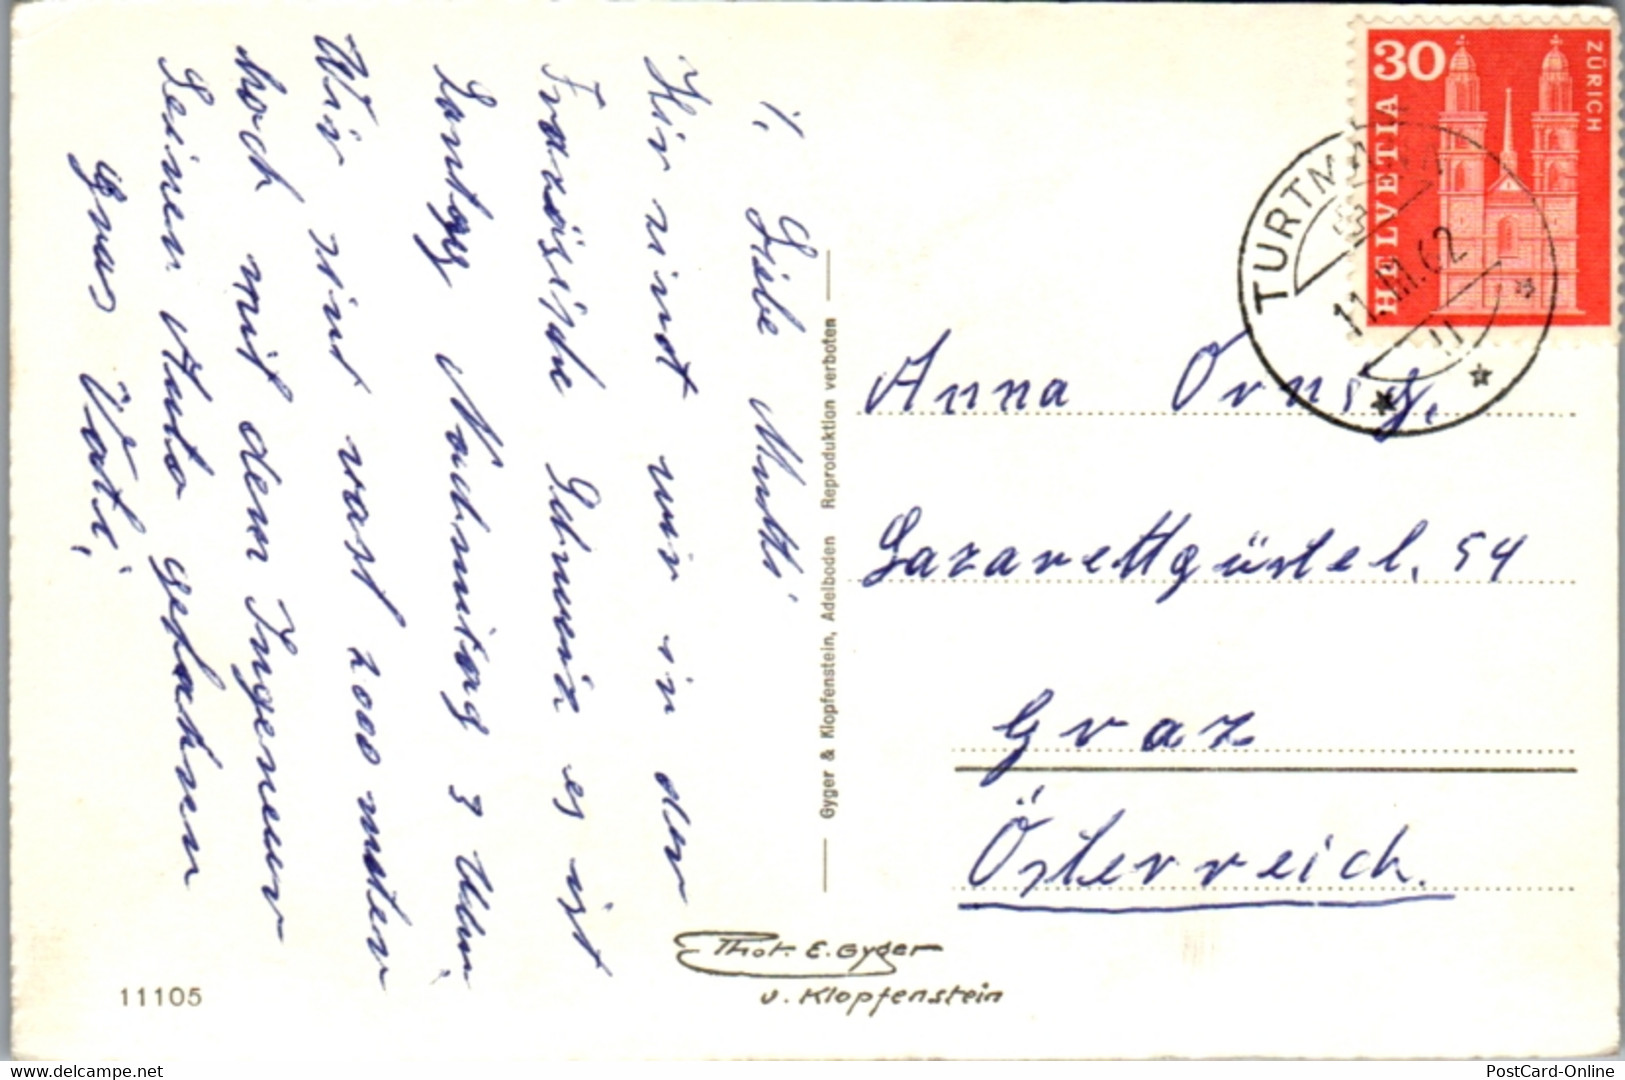 1, Liebe Mutti
Hir sind wir in der
Frazösische Schweiz es ist
Sontag Nachmitag 3 Uhr,
Wir sint vast 2000 meter
hoch mit dem Ingeneur
Seinen Auto gefahren
Grus Vati,
11105
Gyger & Klopfenstein, Adelboden Reproduktion verboten
Phot. E. Gyger
u. Klopfenstein
30
ZÜRICH
HELVETIA
TURTMANN
11. 62
11
Anna
Lazarettgürtel. 54
Graz
Österreich.
PostCard-Online